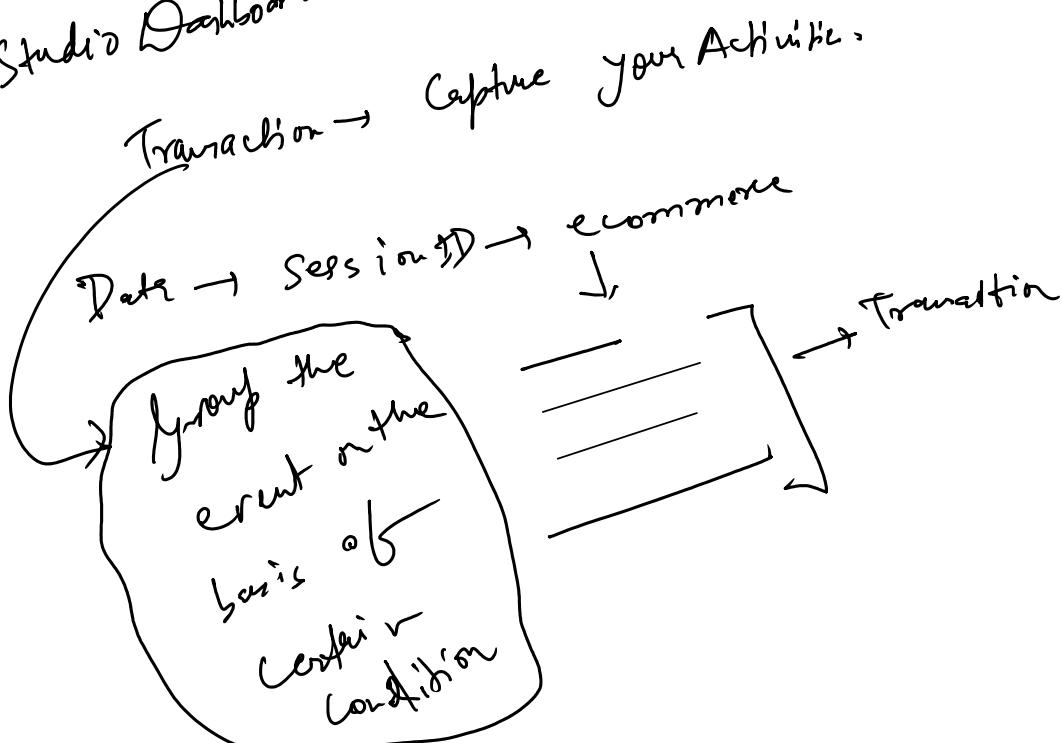 Studio Dashboar
Transaction → Capture your Activities.
Data → Session ID → ecommerce
→ Transaction
Group the
event on the
basis of
certain
condition